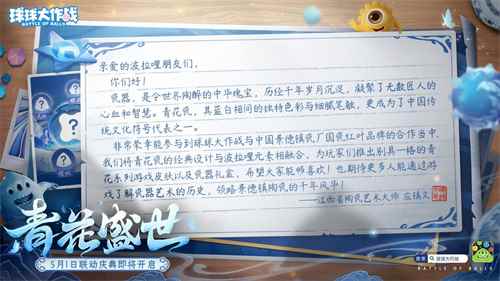 球球大作战
BATTLE OF BALLS
亲爱的波拉哩朋友们，
你们好！
瓷器，是令世界陶醉的中华瑰宝，历经千年岁月沉淀，凝聚了无数匠人的
心血和智慧。青花瓷，其蓝白相间的独特色彩与细腻笔触，更成为了中国传
统文化符号代表之一。
非常荣幸能参与到球球大作战与中国景德镇瓷厂国瓷红叶品牌的合作当中，
我们将青花瓷的经典设计与波拉哩元素相融合，为玩家们推出别具一格的青
花系列游戏皮肤以及瓷器礼盒，希望大家能够喜欢！也期待更多人能通过游
戏了解瓷器艺术的历史，领略景德镇陶瓷的千年风华！
——江西省陶瓷艺术大师 应锦文
青花盛世
5月1日联动庆典即将开启
球球大作战
BATTLE OF BALLS